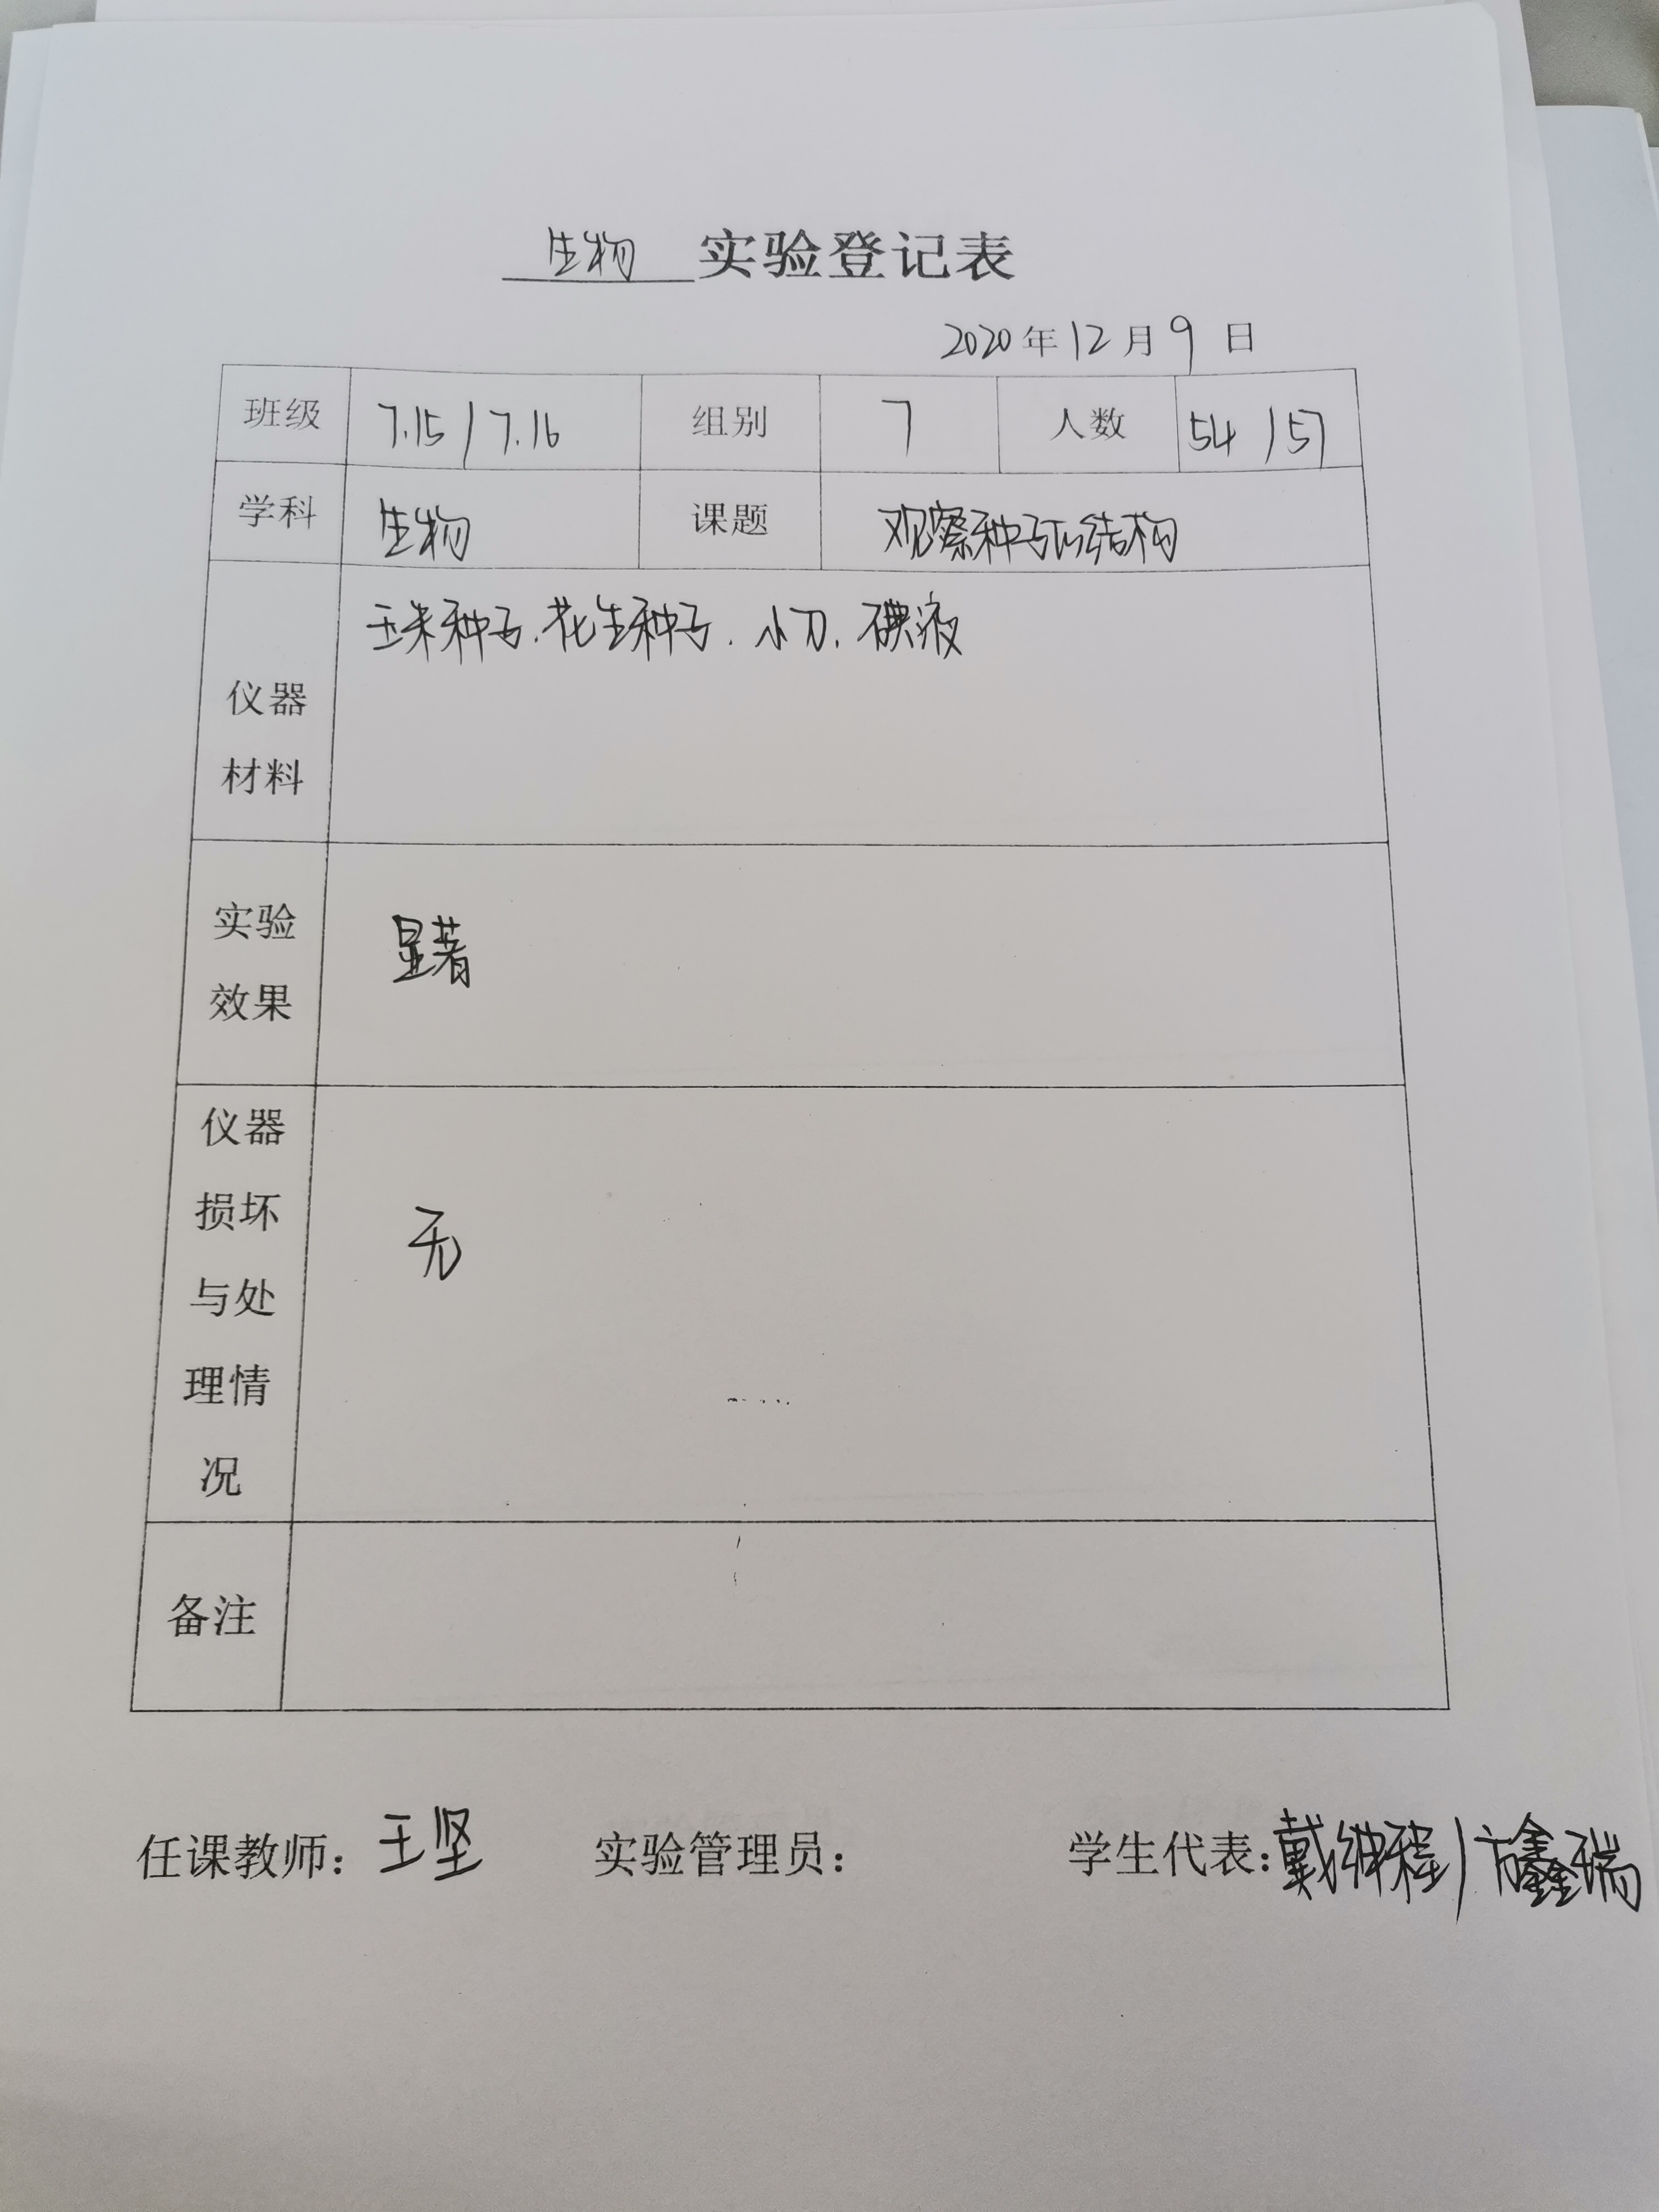 生物 实验登记表
2020年12月9日
班级 7.15/7.16 组别 7 人数 54/57
学科 生物 课题 观察种子的结构
玉米种子.花生种子.小刀.碘液
仪器
材料
实验
显著
效果
仪器
损坏
无
与处
理情
况
备注
任课教师：王坚 实验管理员： 学生代表：戴 程/方鑫瑞